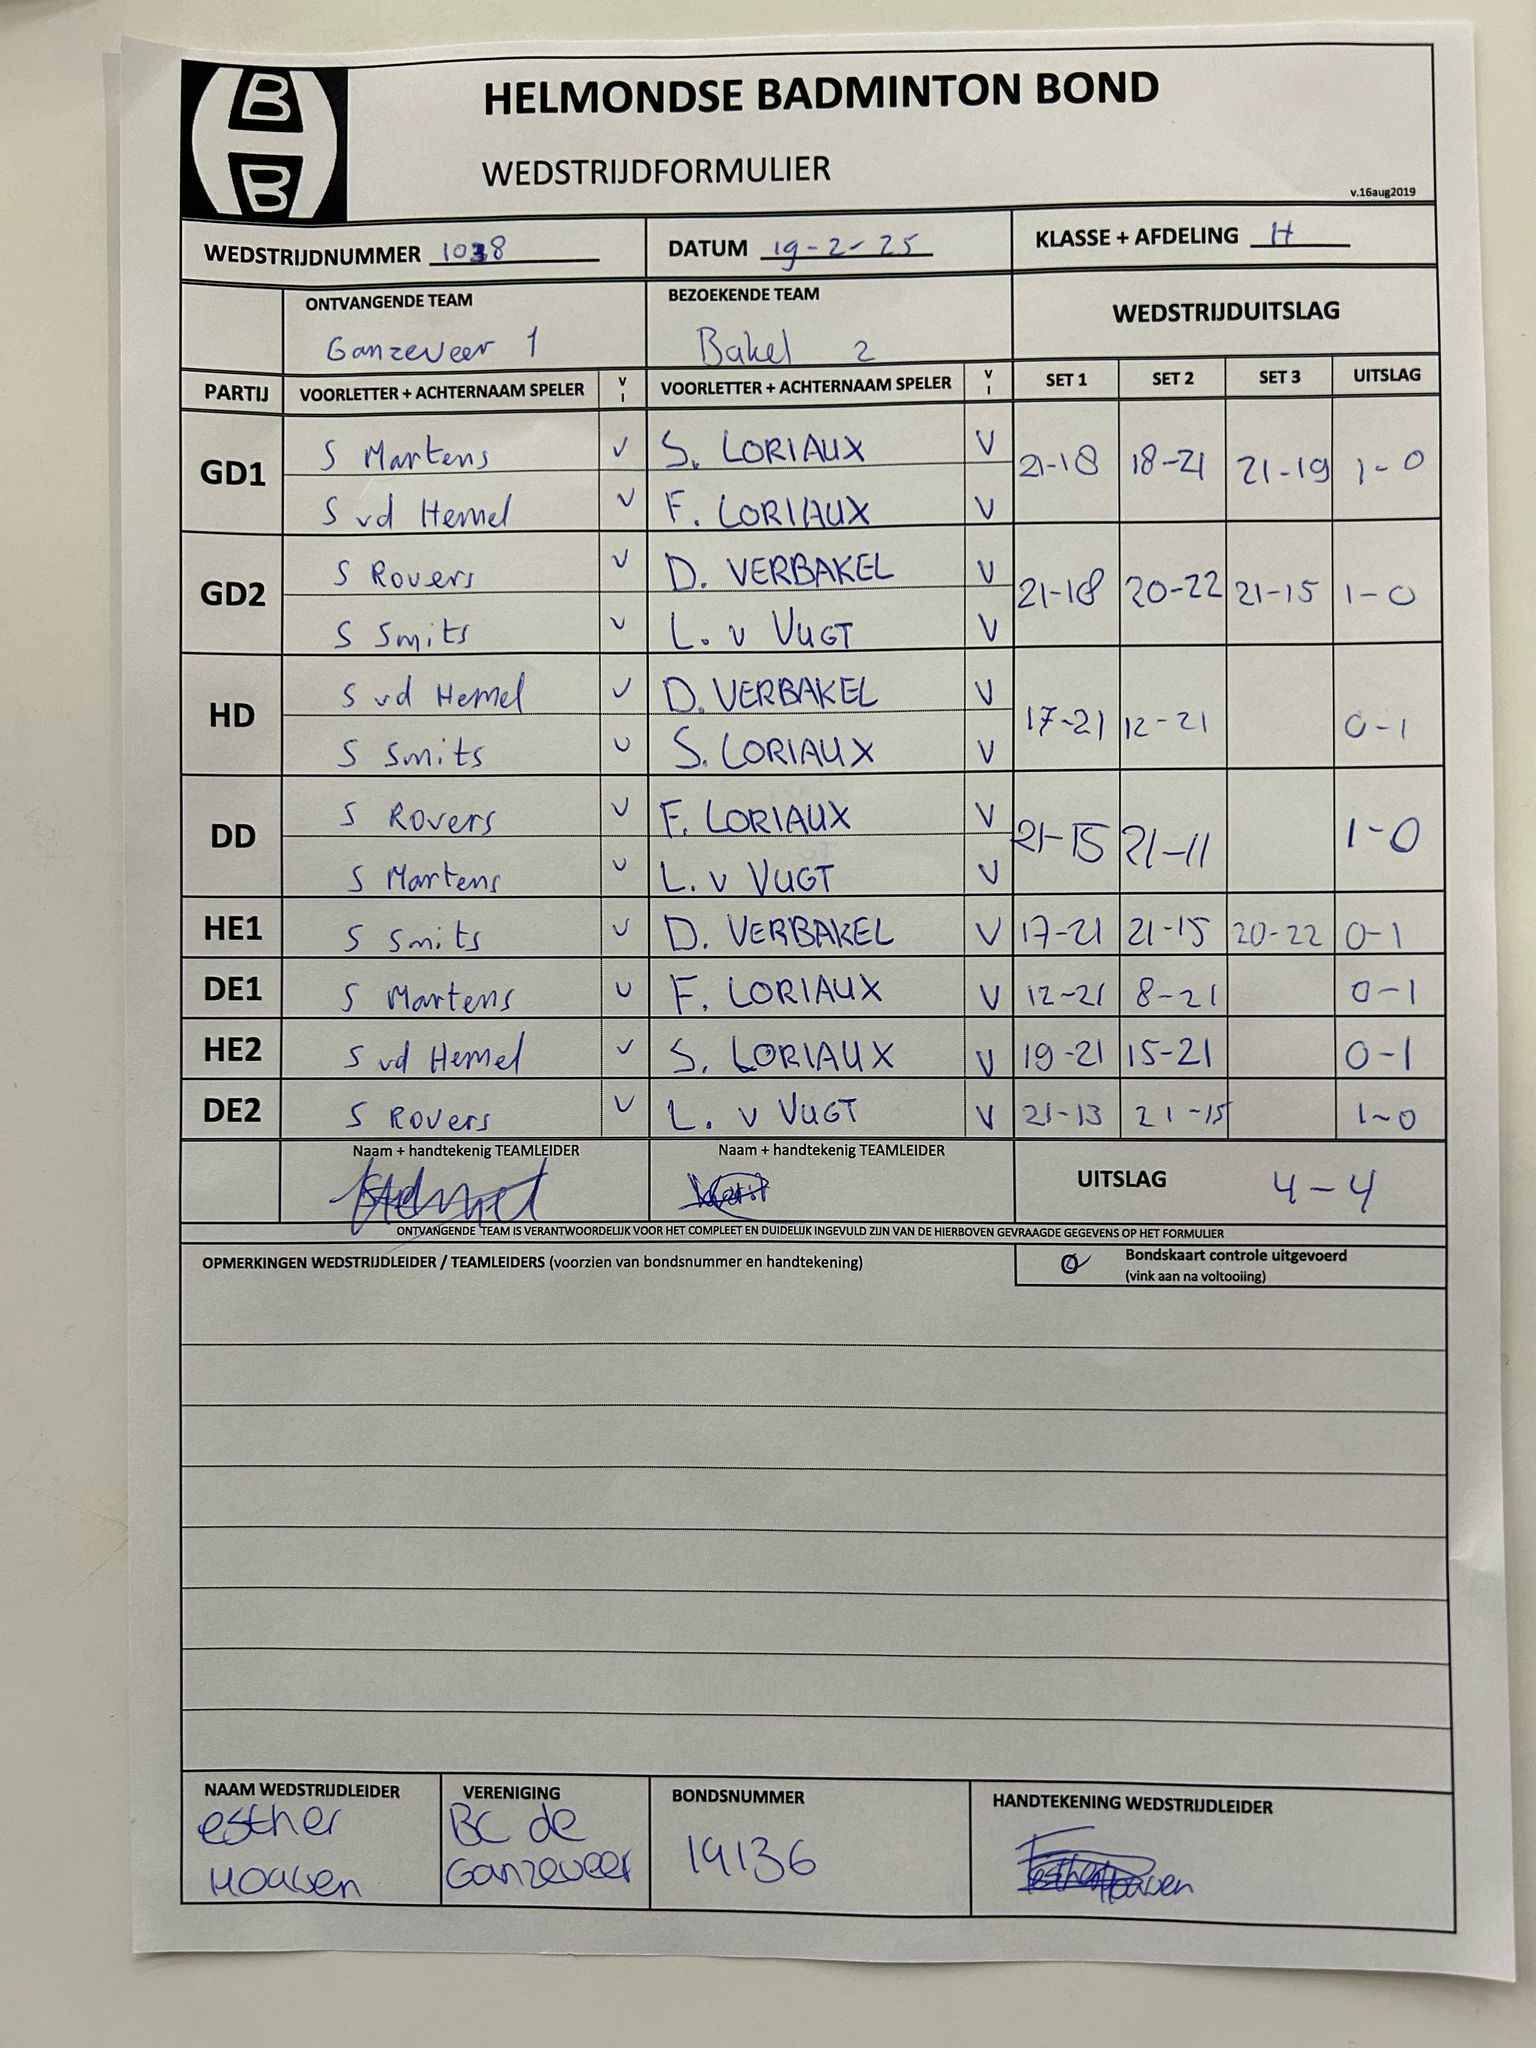 B
B
HELMONDSE BADMINTON BOND
WEDSTRIJDFORMULIER
v.16aug2019
WEDSTRIJDNUMMER 1038 DATUM 19-2-25 KLASSE + AFDELING H
ONTVANGENDE TEAM BEZOEKENDE TEAM WEDSTRIJDUITSLAG
Ganzeveer 1 Bakel 2
PARTIJ VOORLETTER + ACHTERNAAM SPELER V I VOORLETTER + ACHTERNAAM SPELER V I SET 1 SET 2 SET 3 UITSLAG
GD1 S Martens V S. LORIAUX V 21-18 18-21 21-19 1-0
S vd Hemel V F. LORIAUX V
GD2 S Rovers V D. VERBAKEL V 21-18 20-22 21-15 1-0
S Smits V L. v VUGT V
HD S vd Hemel V D. VERBAKEL V 17-21 12-21 0-1
S Smits V S. LORIAUX V
DD S Rovers V F. LORIAUX V 21-15 21-11 1-0
S Martens V L. v VUGT V
HE1 S Smits V D. VERBAKEL V 17-21 21-15 20-22 0-1
DE1 S Martens V F. LORIAUX V 12-21 8-21 0-1
HE2 S vd Hemel V S. LORIAUX V 19-21 15-21 0-1
DE2 S Rovers V L. v VUGT V 21-13 21-15 1-0
Naam + handtekenig TEAMLEIDER Naam + handtekenig TEAMLEIDER UITSLAG 4-4
ONTVANGENDE TEAM IS VERANTWOORDELIJK VOOR HET COMPLEET EN DUIDELIJK INGEVULD ZIJN VAN DE HIERBOVEN GEVRAAGDE GEGEVENS OP HET FORMULIER
OPMERKINGEN WEDSTRIJDLEIDER / TEAMLEIDERS (voorzien van bondsnummer en handtekening) Bondskaart controle uitgevoerd
(vink aan na voltooiing)
NAAM WEDSTRIJDLEIDER VERENIGING BONDSNUMMER HANDTEKENING WEDSTRIJDLEIDER
esther BC de 19136
Houben Ganzeveer